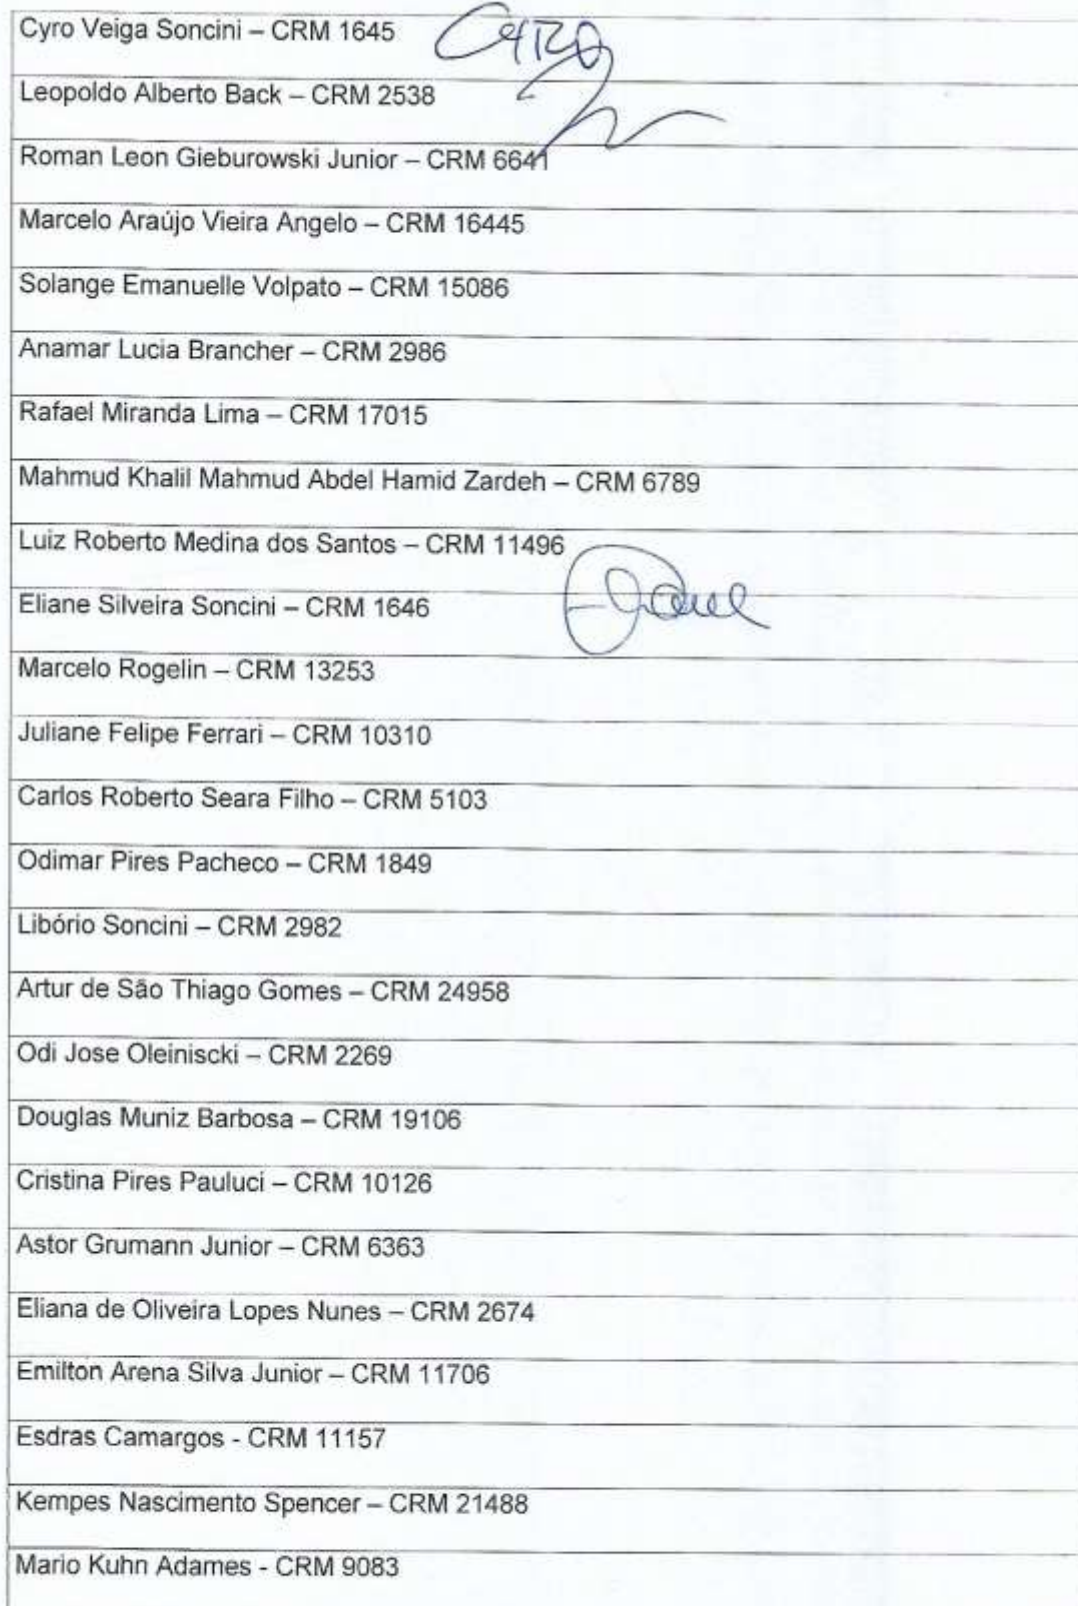 Cyro Veiga Soncini – CRM 1645
Leopoldo Alberto Back – CRM 2538
Roman Leon Gieburowski Junior – CRM 6641
Marcelo Araújo Vieira Angelo – CRM 16445
Solange Emanuelle Volpato – CRM 15086
Anamar Lucia Brancher – CRM 2986
Rafael Miranda Lima – CRM 17015
Mahmud Khalil Mahmud Abdel Hamid Zardeh – CRM 6789
Luiz Roberto Medina dos Santos – CRM 11496
Eliane Silveira Soncini – CRM 1646
Marcelo Rogelin – CRM 13253
Juliane Felipe Ferrari – CRM 10310
Carlos Roberto Seara Filho – CRM 5103
Odimar Pires Pacheco – CRM 1849
Libório Soncini – CRM 2982
Artur de São Thiago Gomes – CRM 24958
Odi Jose Oleiniscki – CRM 2269
Douglas Muniz Barbosa – CRM 19106
Cristina Pires Pauluci – CRM 10126
Astor Grumann Junior – CRM 6363
Eliana de Oliveira Lopes Nunes – CRM 2674
Emilton Arena Silva Junior – CRM 11706
Esdras Camargos - CRM 11157
Kempes Nascimento Spencer – CRM 21488
Mario Kuhn Adames - CRM 9083